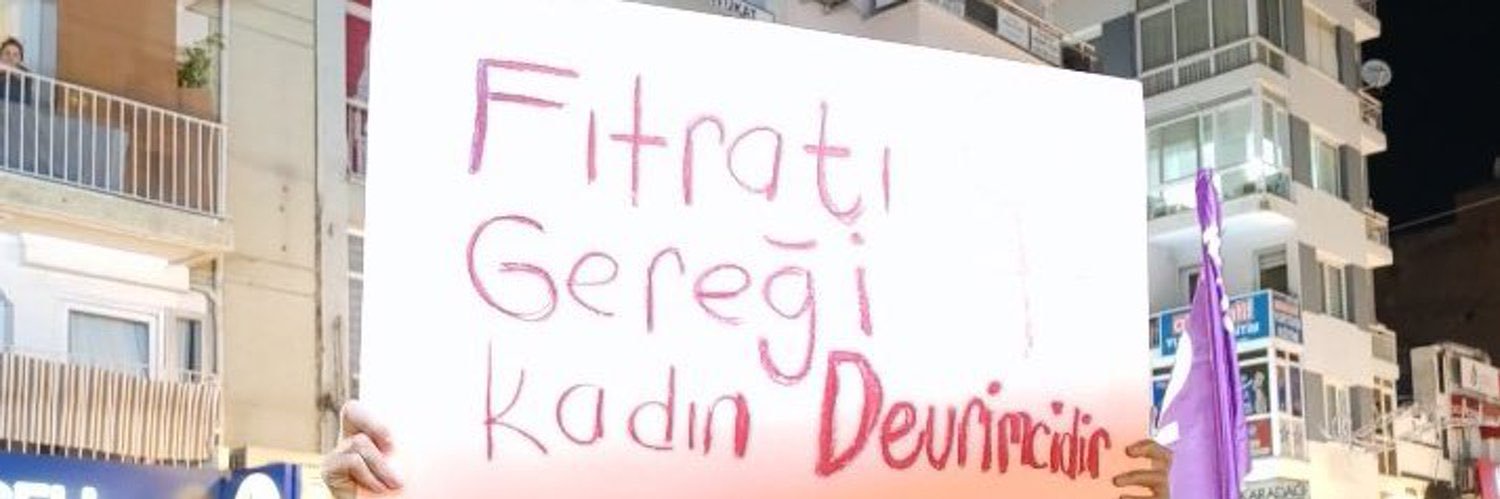 Fıtratı
Gereği
Kadın Devrimcidir